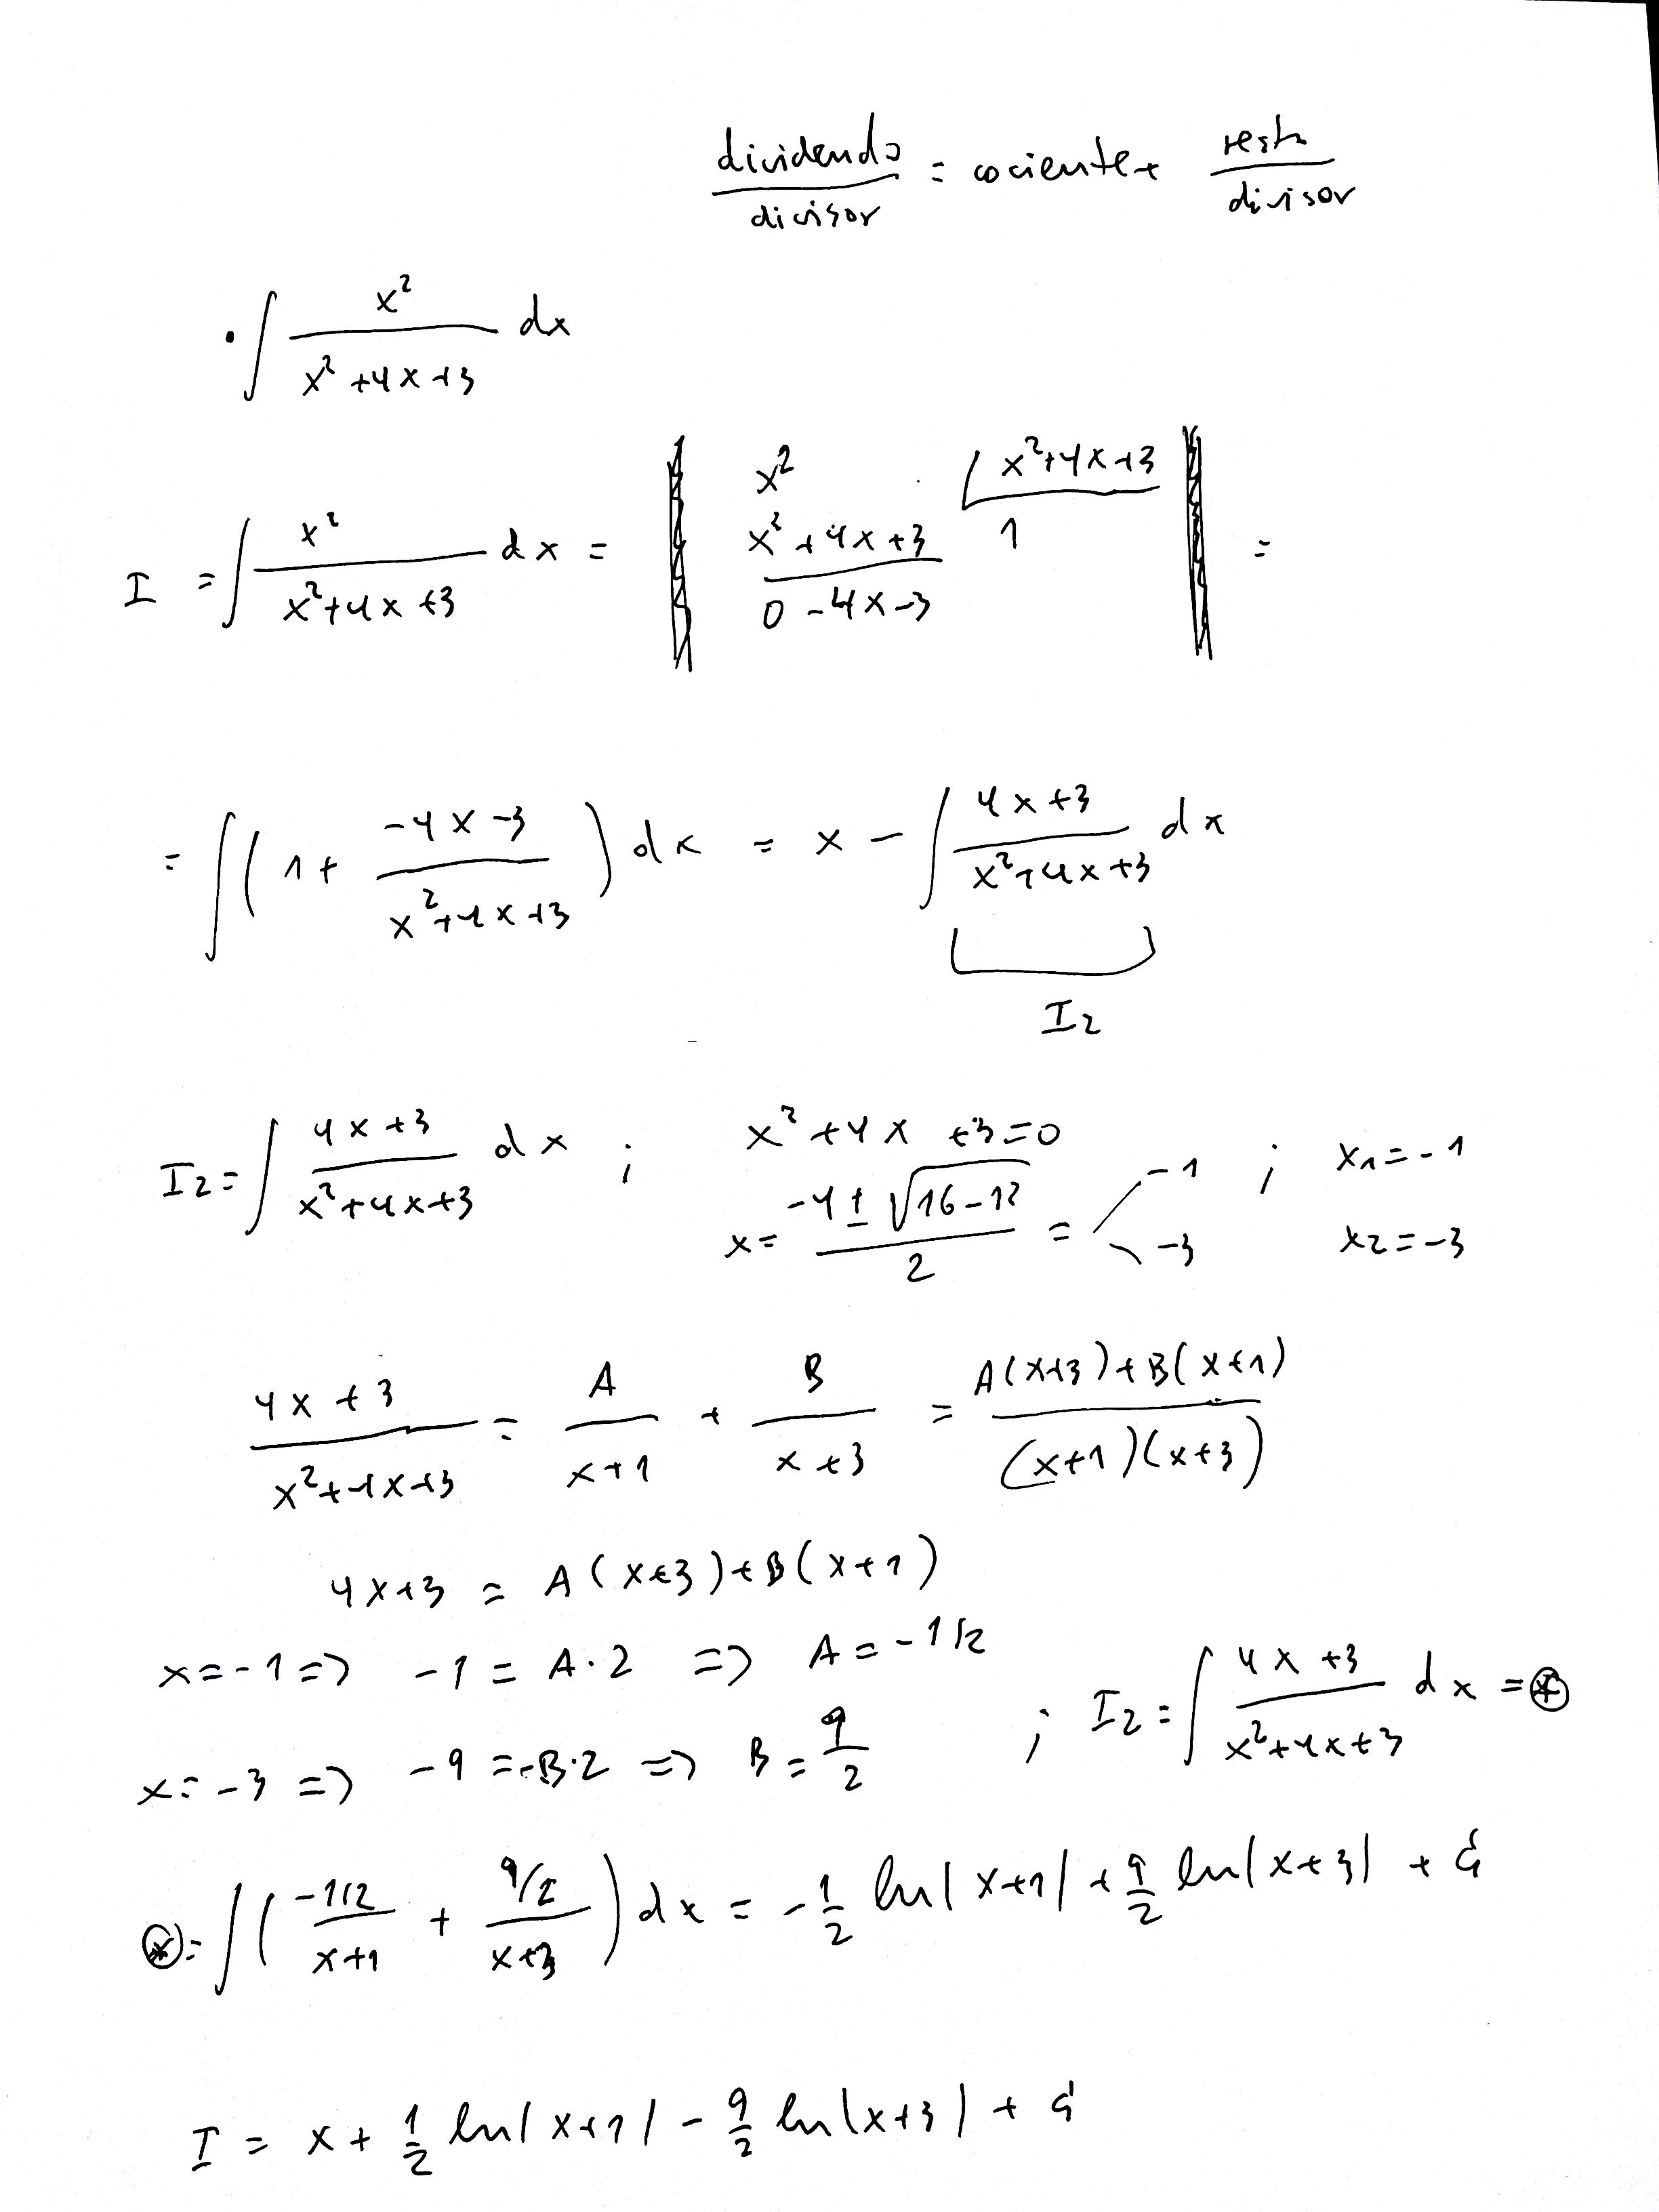 dividendo/divisor = cociente + resto/divisor
· ∫ x²/(x²+4x+3) dx
I = ∫ x²/(x²+4x+3) dx = | x² | x²+4x+3 | =
x²+4x+3 1
0 -4x-3
= ∫ (1 + (-4x-3)/(x²+4x+3)) dx = x - ∫ (4x+3)/(x²+4x+3) dx
I₂
I₂ = ∫ (4x+3)/(x²+4x+3) dx ; x²+4x+3=0
x = (-4 ± √(16-12))/2 = -1, -3 ; x₁=-1 x₂=-3
(4x+3)/(x²+4x+3) = A/(x+1) + B/(x+3) = (A(x+3)+B(x+1))/((x+1)(x+3))
4x+3 = A(x+3)+B(x+1)
x=-1 => -1 = A·2 => A=-1/2
x=-3 => -9 = -B·2 => B = 9/2 ; I₂ = ∫ (4x+3)/(x²+4x+3) dx = ⊛
⊛ = ∫ ((-1/2)/(x+1) + (9/2)/(x+3)) dx = -1/2 ln|x+1| + 9/2 ln|x+3| + C
I = x + 1/2 ln|x+1| - 9/2 ln|x+3| + C